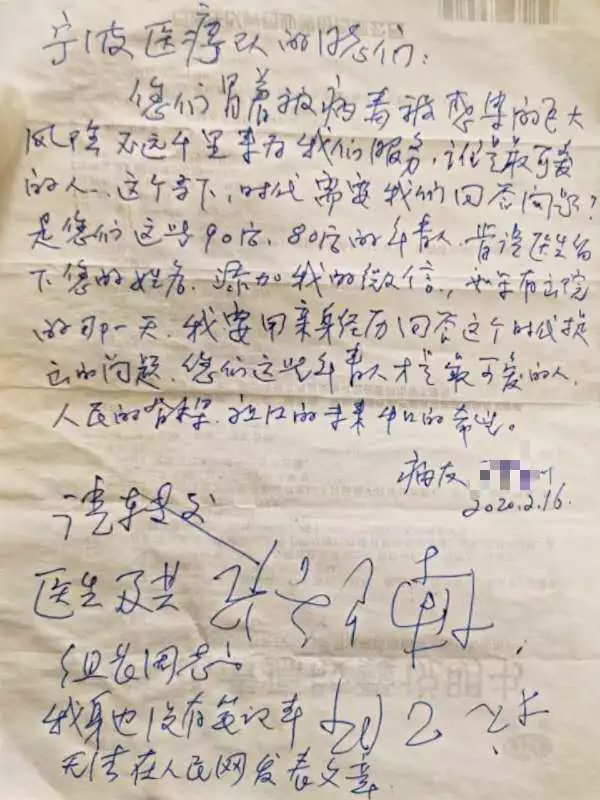 宁波医疗队的同志们:
您们冒着被病毒被感染的巨大
风险不远千里来为我们服务,谁是最可爱
的人..这个当下,时代需要我们回答问题?
是您们这些90后、80后的年青人.肯请医生留
下您的姓名.添加我的微信.,如果有出院
的那一天.我要用亲身经历回答这个时代提
出的问题.您们这些年青人才是最可爱的人.
人民的脊梁.祖国的未来中国的希望。
病友
2020.2.16.
请转呈
医生及共
组长同志。
我身也没有笔记本
无法在人民网发表文章.